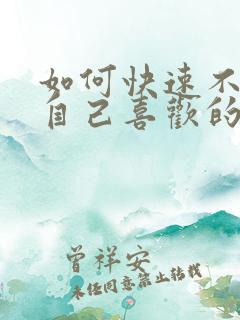 如何快速不
自己喜歡的
曾祥安
未经同意禁止转载